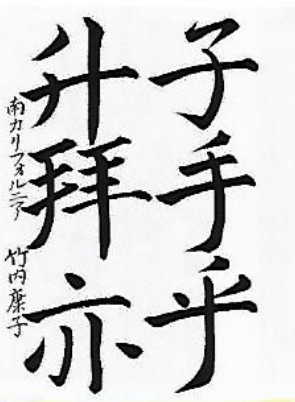 子手乎
升拜亦
南カリフォルニア 竹内康子